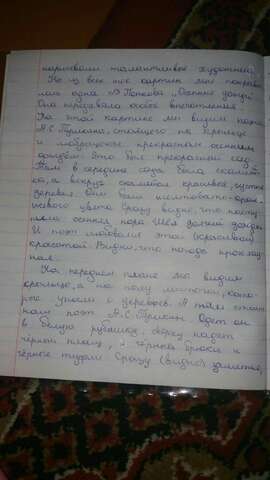 нарисовали талантливые художники.
Но из всех тех картин мне понрави
лась одна В Попкова „Осенние дожди“
Она передавала особое впечатление.
На этой картине мы видим
А.С.Пушкина, стоящего на крыльце
и прекрасным осенним
дождём. Это был прекрасный сад.
Там в середине сада была
а вокруг красивые, густые
деревья. Они были желтовато-оран
жевого цвета Сразу видно, что насту
пила осенняя пора Шёл долгий дождь
И поэт любовался этой (красивой)
красотой. Видно, что погода прохлад
ная.
На переднем плане мы видим
крыльцо, а на полу листочки, кото
рые упали с деревьев. А там
поэт А.С.Пушкин Одет он
в белую рубашку, сверху надет
чёрный плащ, чёрные брюки и
чёрные туфли Сразу (видно) заметно,